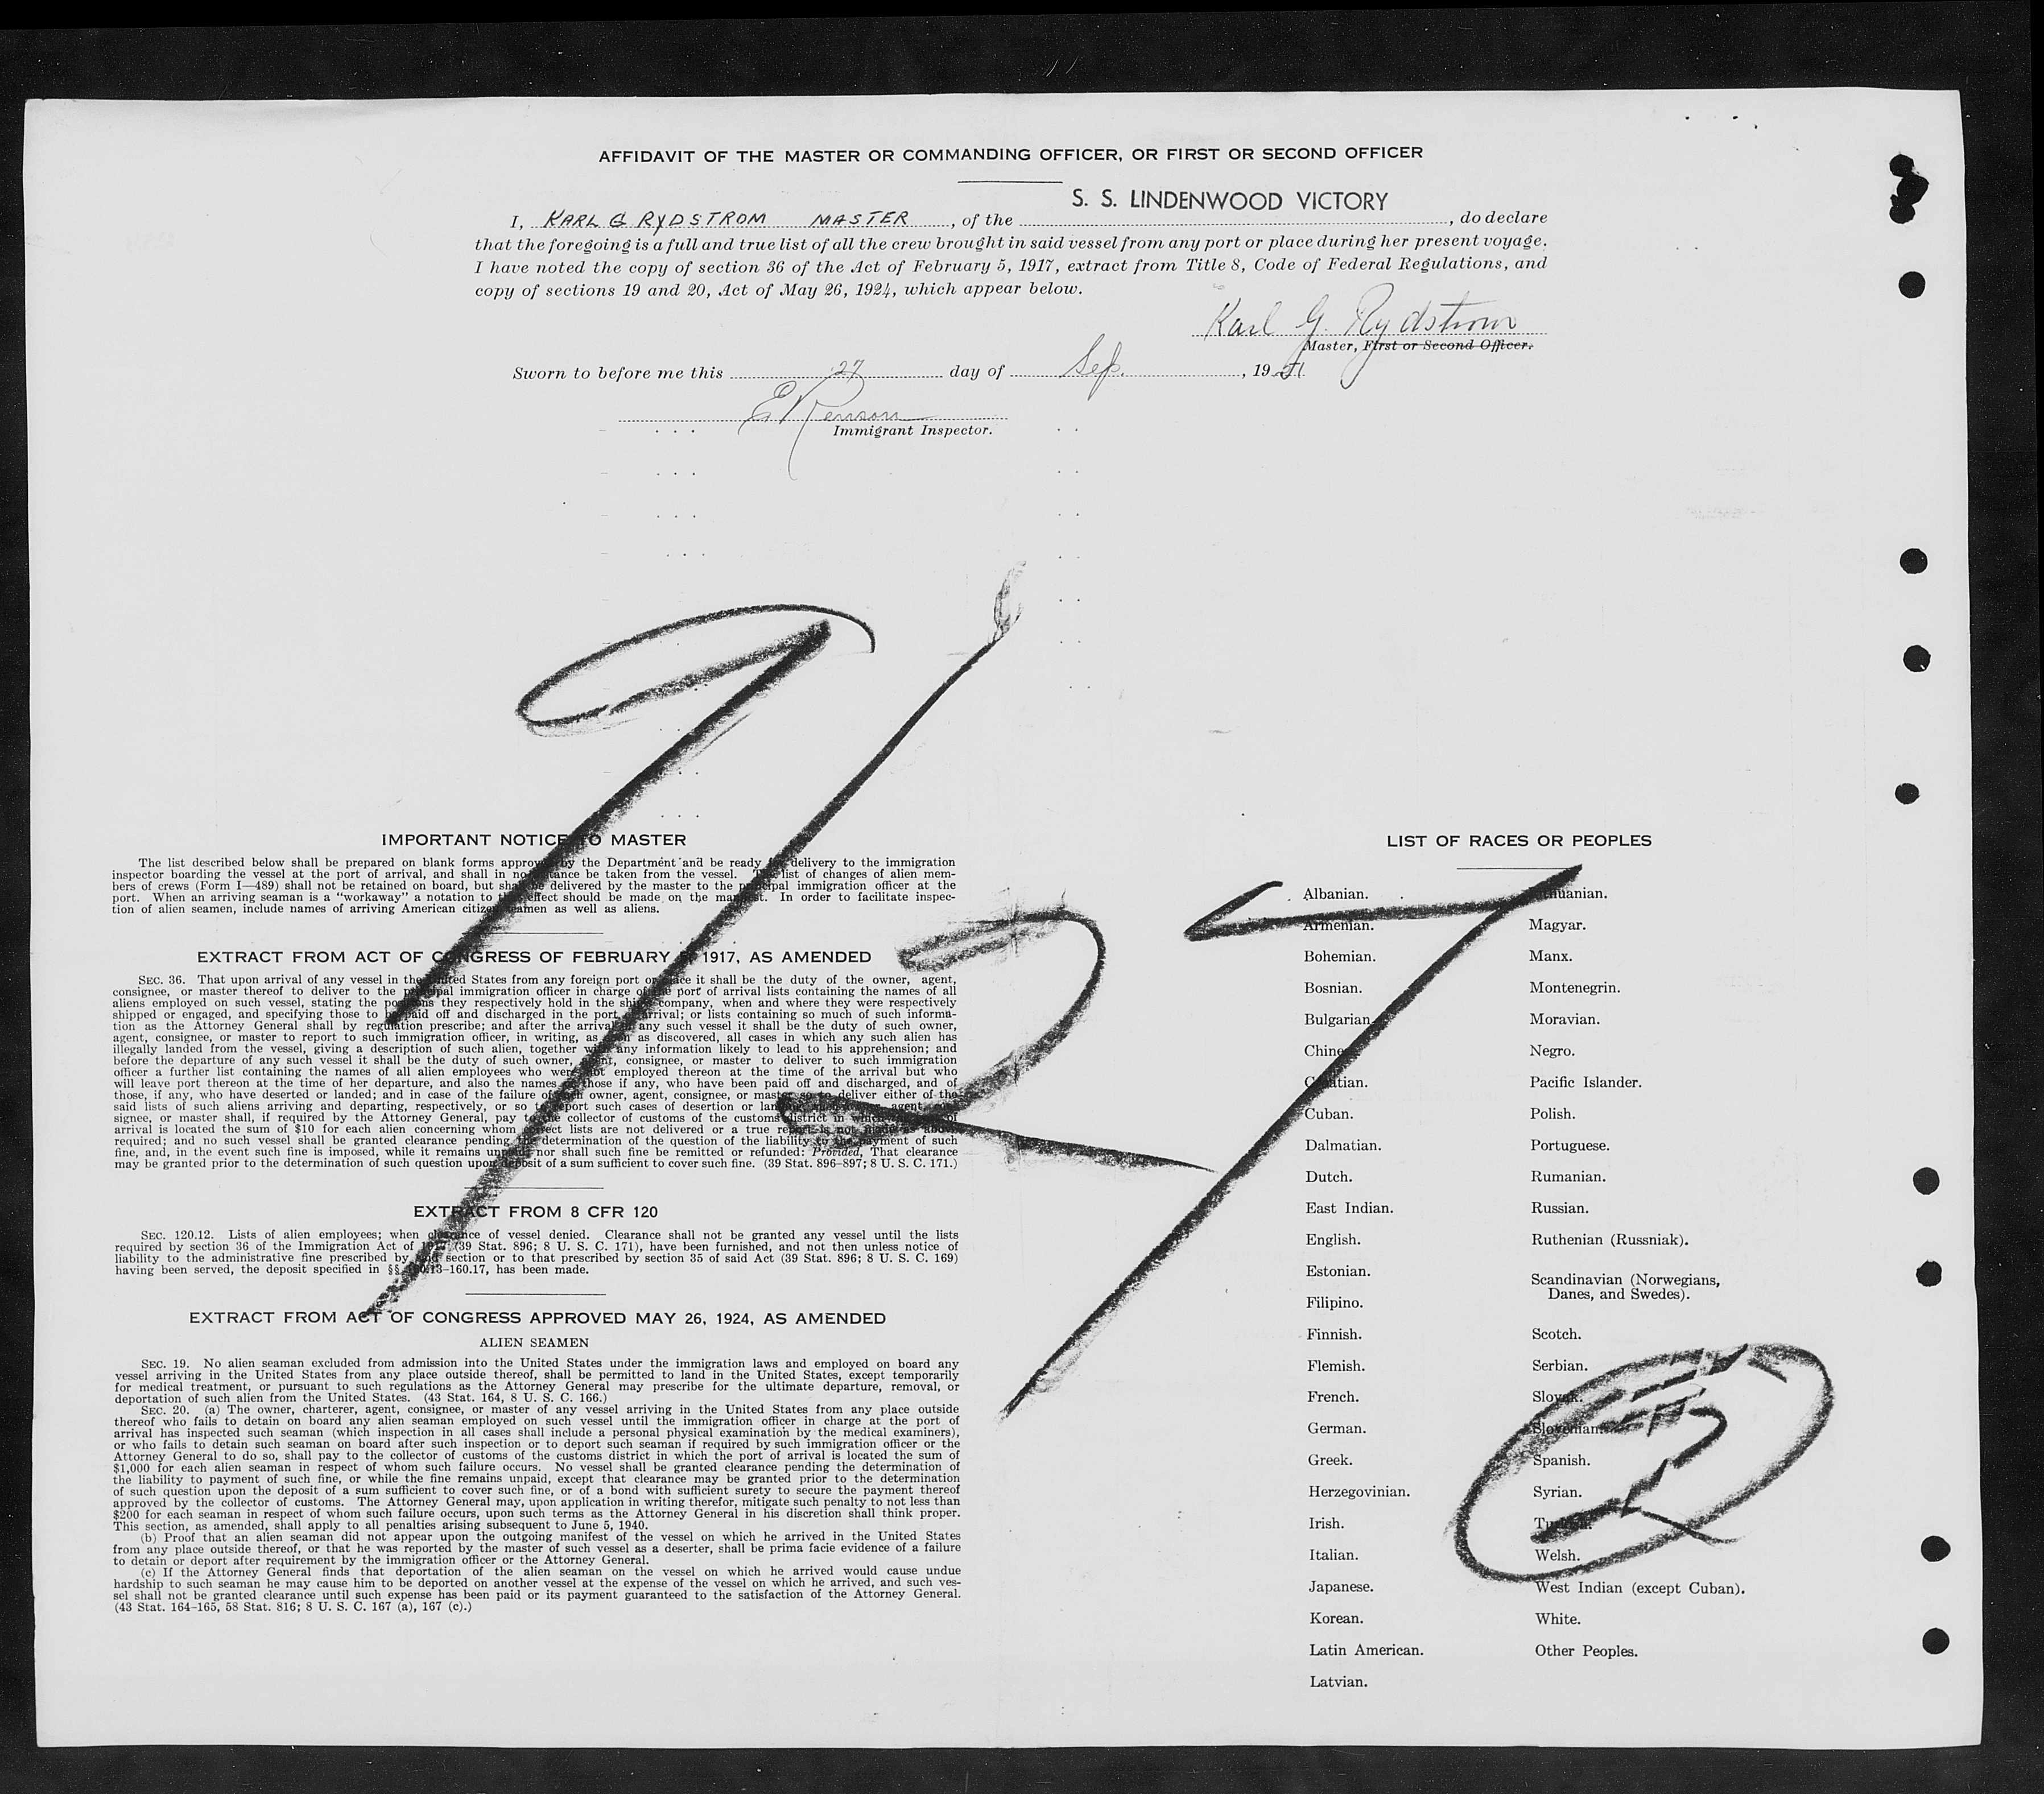 AFFIDAVIT OF THE MASTER OR COMMANDING OFFICER, OR FIRST OR SECOND OFFICER
S. S. LINDENWOOD VICTORY
I, KARL G RYDSTROM MASTER, of the , do declare
that the foregoing is a full and true list of all the crew brought in said vessel from any port or place during her present voyage.
I have noted the copy of section 36 of the Act of February 5, 1917, extract from Title 8, Code of Federal Regulations, and
copy of sections 19 and 20, Act of May 26, 1924, which appear below.
Karl G. Rydstrom
Master, First or Second Officer.
Sworn to before me this 27 day of Sep. , 1951
Immigrant Inspector.
9/27
IMPORTANT NOTICE TO MASTER
The list described below shall be prepared on blank forms approved by the Department and be ready for delivery to the immigration
inspector boarding the vessel at the port of arrival, and shall in no instance be taken from the vessel. The list of changes of alien mem-
bers of crews (Form I—489) shall not be retained on board, but shall be delivered by the master to the principal immigration officer at the
port. When an arriving seaman is a "workaway" a notation to this effect should be made on the manifest. In order to facilitate inspec-
tion of alien seamen, include names of arriving American citizen seamen as well as aliens.
EXTRACT FROM ACT OF CONGRESS OF FEBRUARY 5, 1917, AS AMENDED
SEC. 36. That upon arrival of any vessel in the United States from any foreign port or place it shall be the duty of the owner, agent,
consignee, or master thereof to deliver to the principal immigration officer in charge of the port of arrival lists containing the names of all
aliens employed on such vessel, stating the positions they respectively hold in the ship's company, when and where they were respectively
shipped or engaged, and specifying those to be paid off and discharged in the port of arrival; or lists containing so much of such informa-
tion as the Attorney General shall by regulation prescribe; and after the arrival of any such vessel it shall be the duty of such owner,
agent, consignee, or master to report to such immigration officer, in writing, as soon as discovered, all cases in which any such alien has
illegally landed from the vessel, giving a description of such alien, together with any information likely to lead to his apprehension; and
before the departure of any such vessel it shall be the duty of such owner, agent, consignee, or master to deliver to such immigration
officer a further list containing the names of all alien employees who were not employed thereon at the time of the arrival but who
will leave port thereon at the time of her departure, and also the names of those if any, who have been paid off and discharged, and of
those, if any, who have deserted or landed; and in case of the failure of such owner, agent, consignee, or master so to deliver either of the
said lists of such aliens arriving and departing, respectively, or so to report such cases of desertion or landing, such owner, agent, con-
signee, or master shall, if required by the Attorney General, pay to the collector of customs of the customs district in which the port of
arrival is located the sum of $10 for each alien concerning whom correct lists are not delivered or a true report is not made as above
required; and no such vessel shall be granted clearance pending the determination of the question of the liability to the payment of such
fine, and, in the event such fine is imposed, while it remains unpaid, nor shall such fine be remitted or refunded: Provided, That clearance
may be granted prior to the determination of such question upon deposit of a sum sufficient to cover such fine. (39 Stat. 896–897; 8 U. S. C. 171.)
EXTRACT FROM 8 CFR 120
SEC. 120.12. Lists of alien employees; when clearance of vessel denied. Clearance shall not be granted any vessel until the lists
required by section 36 of the Immigration Act of 1917 (39 Stat. 896; 8 U. S. C. 171), have been furnished, and not then unless notice of
liability to the administrative fine prescribed by said section or to that prescribed by section 35 of said Act (39 Stat. 896; 8 U. S. C. 169)
having been served, the deposit specified in §§ 160.13–160.17, has been made.
EXTRACT FROM ACT OF CONGRESS APPROVED MAY 26, 1924, AS AMENDED
ALIEN SEAMEN
SEC. 19. No alien seaman excluded from admission into the United States under the immigration laws and employed on board any
vessel arriving in the United States from any place outside thereof, shall be permitted to land in the United States, except temporarily
for medical treatment, or pursuant to such regulations as the Attorney General may prescribe for the ultimate departure, removal, or
deportation of such alien from the United States. (43 Stat. 164, 8 U. S. C. 166.)
SEC. 20. (a) The owner, charterer, agent, consignee, or master of any vessel arriving in the United States from any place outside
thereof who fails to detain on board any alien seaman employed on such vessel until the immigration officer in charge at the port of
arrival has inspected such seaman (which inspection in all cases shall include a personal physical examination by the medical examiners),
or who fails to detain such seaman on board after such inspection or to deport such seaman if required by such immigration officer or the
Attorney General to do so, shall pay to the collector of customs of the customs district in which the port of arrival is located the sum of
$1,000 for each alien seaman in respect of whom such failure occurs. No vessel shall be granted clearance pending the determination of
the liability to payment of such fine, or while the fine remains unpaid, except that clearance may be granted prior to the determination
of such question upon the deposit of a sum sufficient to cover such fine, or of a bond with sufficient surety to secure the payment thereof
approved by the collector of customs. The Attorney General may, upon application in writing therefor, mitigate such penalty to not less than
$200 for each seaman in respect of whom such failure occurs, upon such terms as the Attorney General in his discretion shall think proper.
This section, as amended, shall apply to all penalties arising subsequent to June 5, 1940.
(b) Proof that an alien seaman did not appear upon the outgoing manifest of the vessel on which he arrived in the United States
from any place outside thereof, or that he was reported by the master of such vessel as a deserter, shall be prima facie evidence of a failure
to detain or deport after requirement by the immigration officer or the Attorney General.
(c) If the Attorney General finds that deportation of the alien seaman on the vessel on which he arrived would cause undue
hardship to such seaman he may cause him to be deported on another vessel at the expense of the vessel on which he arrived, and such ves-
sel shall not be granted clearance until such expense has been paid or its payment guaranteed to the satisfaction of the Attorney General.
(43 Stat. 164–165, 58 Stat. 816; 8 U. S. C. 167 (a), 167 (c).)
LIST OF RACES OR PEOPLES
Albanian.
Armenian.
Bohemian.
Bosnian.
Bulgarian.
Chinese.
Croatian.
Cuban.
Dalmatian.
Dutch.
East Indian.
English.
Estonian.
Filipino.
Finnish.
Flemish.
French.
German.
Greek.
Herzegovinian.
Irish.
Italian.
Japanese.
Korean.
Latin American.
Latvian.
Lithuanian.
Magyar.
Manx.
Montenegrin.
Moravian.
Negro.
Pacific Islander.
Polish.
Portuguese.
Rumanian.
Russian.
Ruthenian (Russniak).
Scandinavian (Norwegians,
Danes, and Swedes).
Scotch.
Serbian.
Slovak.
Slovenian.
Spanish.
Syrian.
Turkish.
Welsh.
West Indian (except Cuban).
White.
Other Peoples.
2